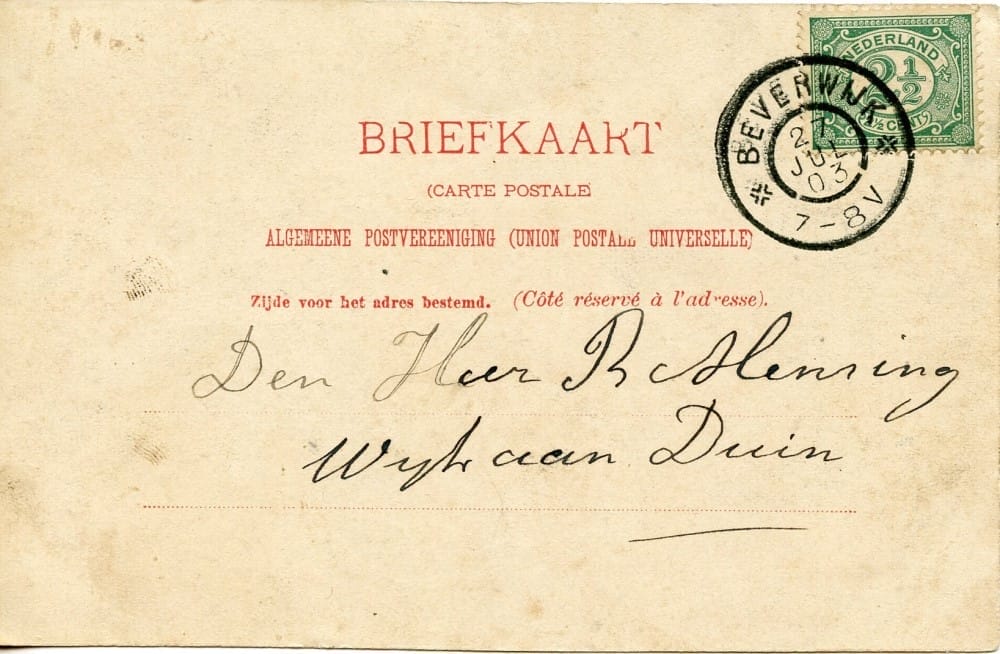 NEDERLAND
2½
½ CENT
BEVERWIJK
27
JUL
03
7-8V
BRIEFKAART
(CARTE POSTALE)
ALGEMEENE POSTVEREENIGING (UNION POSTALE UNIVERSELLE)
Zijde voor het adres bestemd. (Côté réservé à l'adresse).
Den Heer R Mensing
Wyk aan Duin